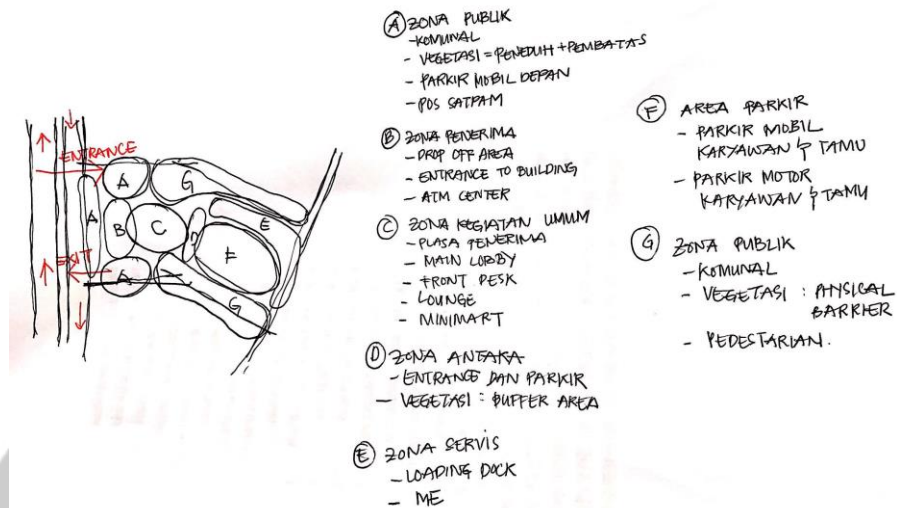 ENTRANCE
A
G
A
B
C
D
E
F
EXIT
A
G
A ZONA PUBLIK
- KOMUNAL
- VEGETASI = PENEDUH + PEMBATAS
- PARKIR MOBIL DEPAN
- POS SATPAM
B ZONA PENERIMA
- DROP OFF AREA
- ENTRANCE TO BUILDING
- ATM CENTER
C ZONA KEGIATAN UMUM
- PLASA PENERIMA
- MAIN LOBBY
- FRONT DESK
- LOUNGE
- MINIMART
D ZONA ANTARA
- ENTRANCE DAN PARKIR
- VEGETASI : BUFFER AREA
E ZONA SERVIS
- LOADING DOCK
- ME
F AREA PARKIR
- PARKIR MOBIL
KARYAWAN & TAMU
- PARKIR MOTOR
KARYAWAN & TAMU
G ZONA PUBLIK
- KOMUNAL
- VEGETASI : PHYSICAL
BARRIER
- PEDESTARIAN.